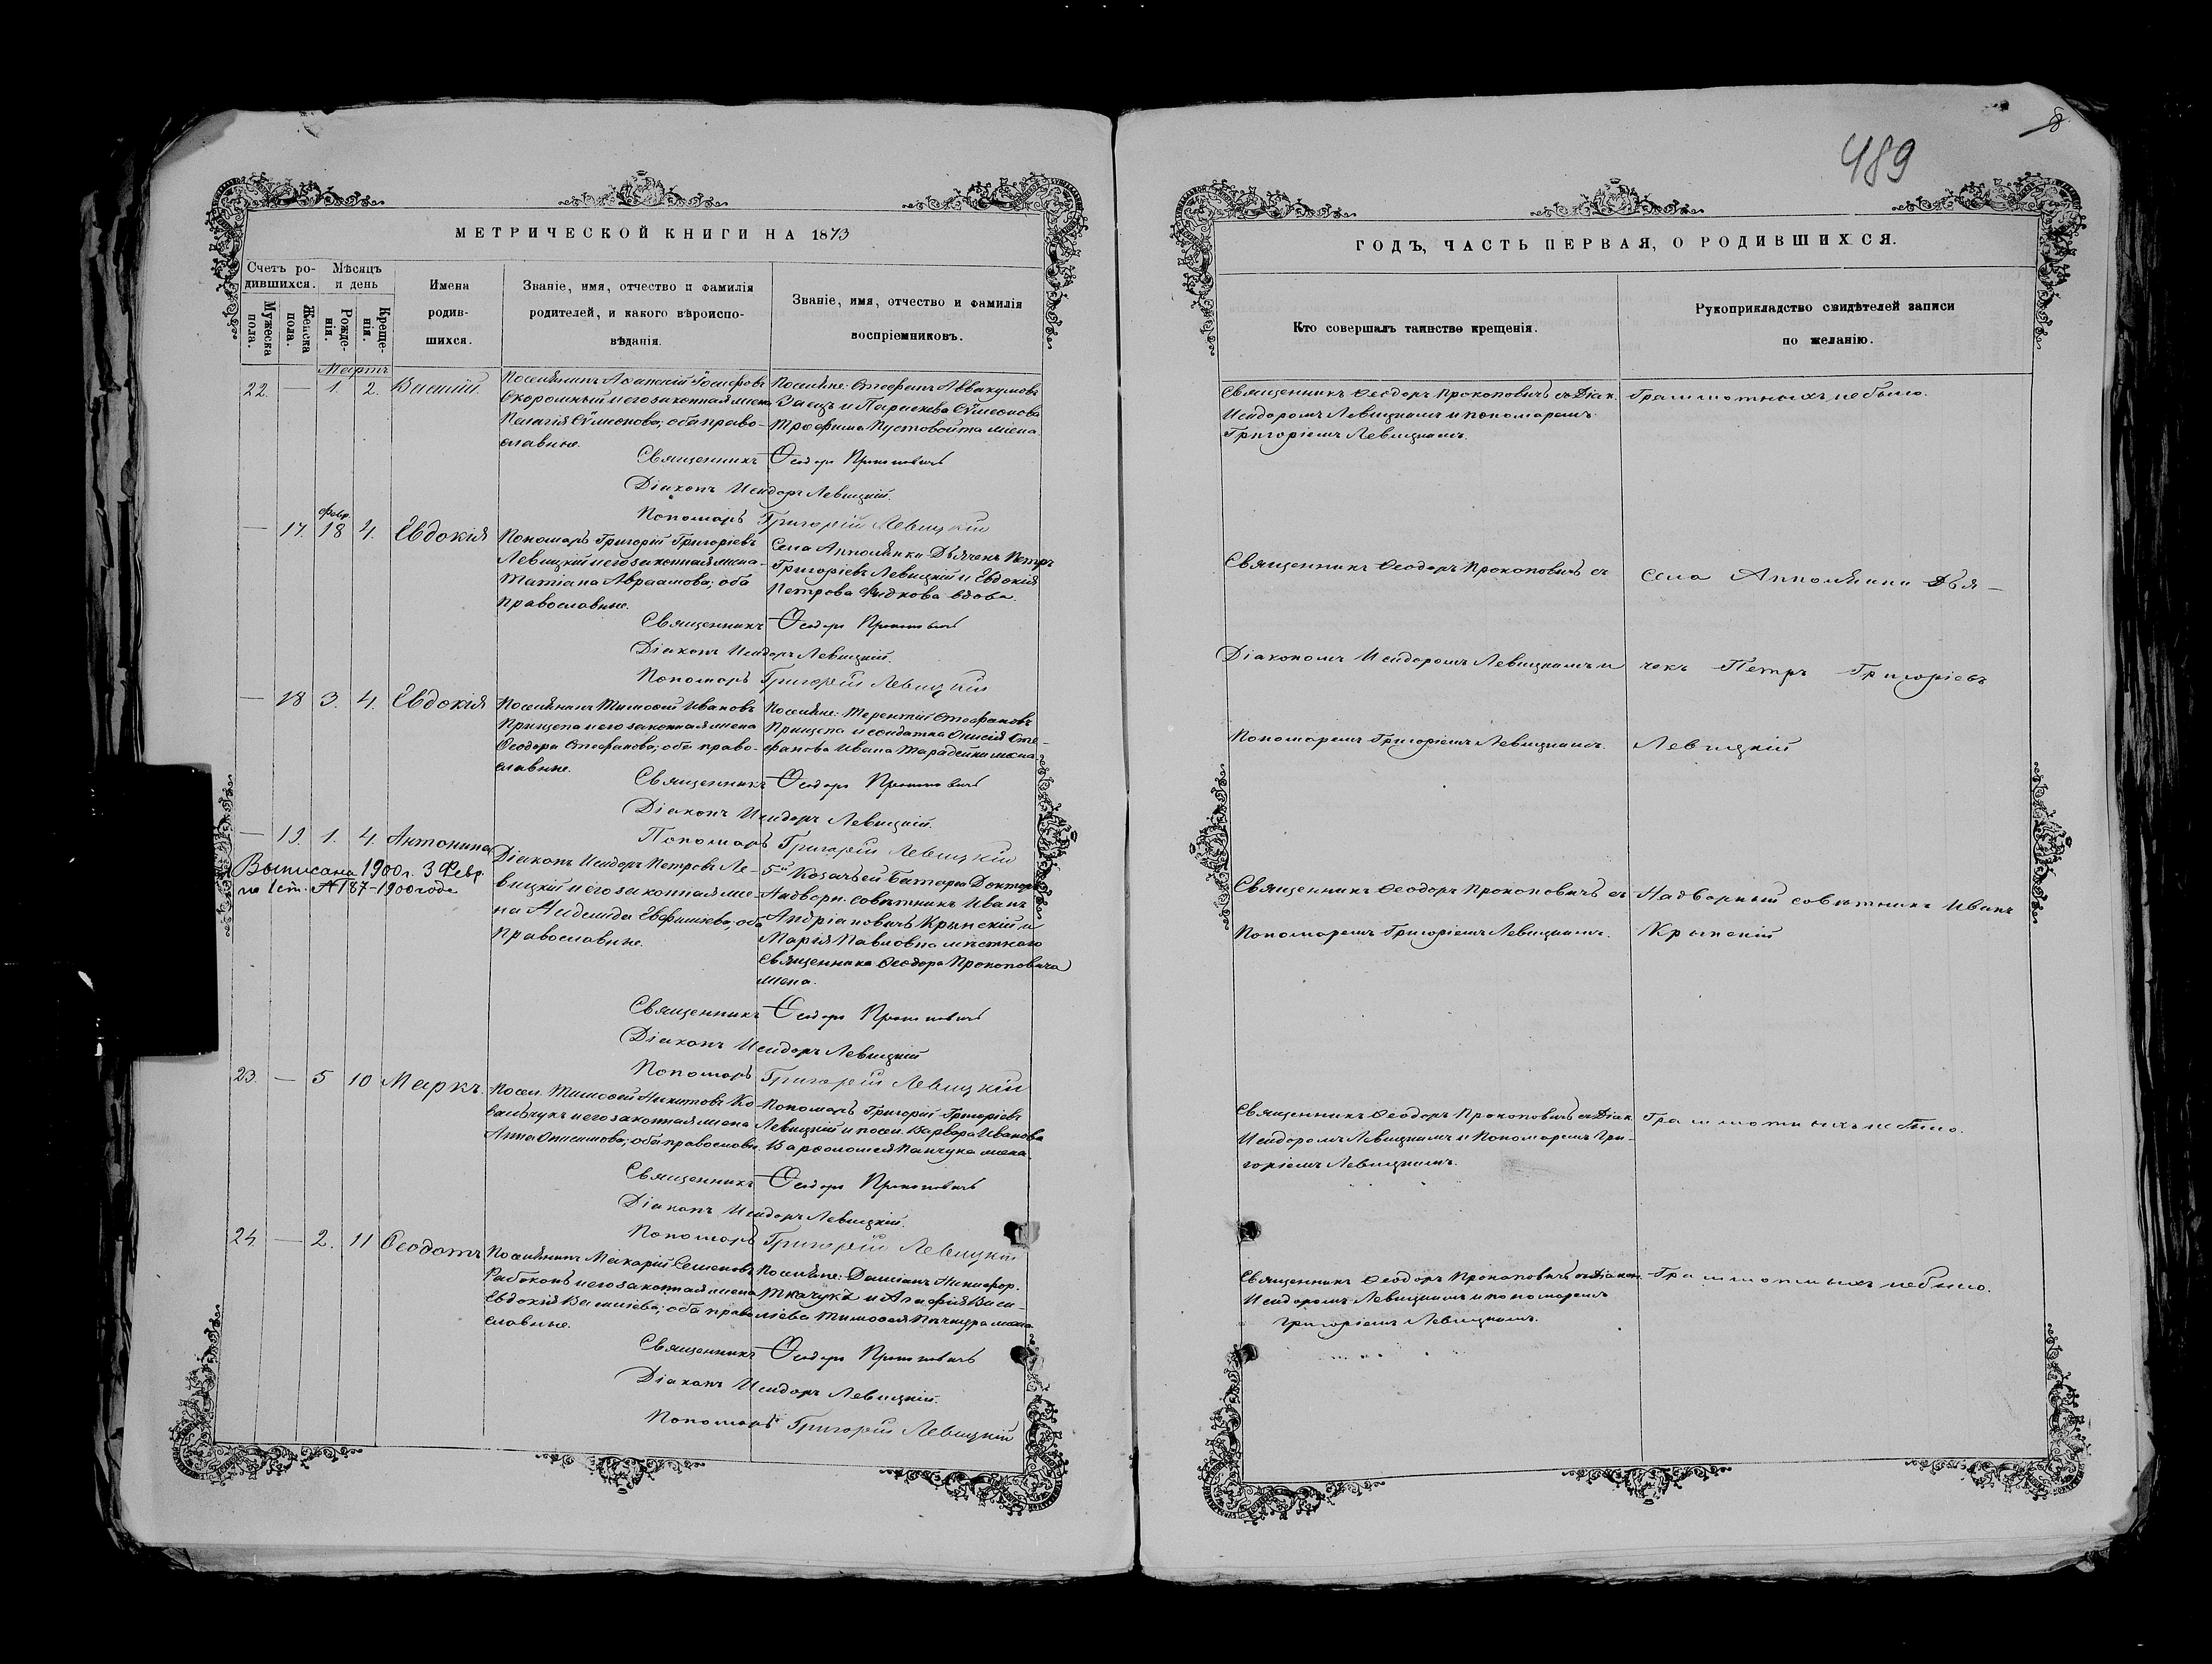 МЕТРИЧЕСКОЙ КНИГИ НА 1873
Счетъ ро-
дившихся.
Мѣсяцъ
и день
Мужеска
пола.
Женска
пола.
Рожде-
нія.
Креще-
нія.
Имена
родив-
шихся.
Званіе, имя, отчество и фамилія
родителей, и какого вѣроиспо-
вѣданія.
Званіе, имя, отчество и фамилія
воспріемниковъ.
Мартъ
22. — 1. 2. Василій.
Поселянинъ Аѳанасій Іосифовъ
Скоромный и его законная жена
Пелагія Сѵмеонова; оба право-
славные.
Поселяне: Стефанъ Аввакумовъ
Заецъ и Параскева Сѵмеонова
Трофима Пустовойта жена.
Священникъ Ѳеодоръ Прокоповичъ
Діаконъ Исидоръ Левицкій.
Пономарь Григорій Левицкій
Февр.
— 17. 18 4. Евдокія
Пономарь Григорій Григоріевъ
Левицкій и его законная жена
Татіана Авраамова; оба
православные.
Села Дьячекъ Петръ
Григоріевъ Левицкій и Евдокія
Петрова вдова.
Священникъ Ѳеодоръ Прокоповичъ
Діаконъ Исидоръ Левицкій.
Пономарь Григорій Левицкій
— 18 3. 4. Евдокія
Поселянинъ Тимоѳей Ивановъ
Прищепа и его законная жена
Ѳеодора Стефанова; оба право-
славные.
Поселяне: Терентій Стефановъ
Прищепа и солдатка Онисія Сте-
фанова Ивана Тарадейки жена.
Священникъ Ѳеодоръ Прокоповичъ
Діаконъ Исидоръ Левицкій.
Пономарь Григорій Левицкій
— 19. 1. 4. Антонина
Выписана 1900 г. 3 Февр.
№ 187-1900 года
Діаконъ Исидоръ Петровъ Ле-
вицкій и его законная же-
на Евфиміева; оба
православные.
5й Козачьей Батареи Докторъ
Надворн. Совѣтникъ Иванъ
Андріановичъ Крынскій и
Марія Павловна мѣстнаго
Священника Ѳеодора Прокоповича
жена.
Священникъ Ѳеодоръ Прокоповичъ
Діаконъ Исидоръ Левицкій
Пономарь Григорій Левицкій
23. — 5 10 Маркъ.
Посел. Тимоѳей Никитовъ Ко-
вальчукъ и его законная жена
Анна Онисимова; оба православн.
Пономарь Григорій Григоріевъ
Левицкій и посел. Варвара Иванова
Варѳоломея Панчука жена.
Священникъ Ѳеодоръ Прокоповичъ
Діаконъ Исидоръ Левицкій.
Пономарь Григорій Левицкій
24. — 2. 11 Ѳеодотъ
Поселянинъ Макарій Семеновъ
Рабоконь и его законная жена
Евдокія Василіева; оба право-
славные.
Поселяне: Даміанъ Никифор.
Ткачукъ и Агафія Васи-
ліева Тимоѳея жена.
Священникъ Ѳеодоръ Прокоповичъ
Діаконъ Исидоръ Левицкій.
Пономарь Григорій Левицкій
489
8
ГОДЪ, ЧАСТЬ ПЕРВАЯ, О РОДИВШИХСЯ.
Кто совершалъ таинство крещенія.
Рукоприкладство свидѣтелей записи
по желанію.
Священникъ Ѳеодоръ Прокоповичъ съ Діак.
Исидоромъ Левицкимъ и пономаремъ
Григоріемъ Левицкимъ.
Грамотныхъ не было.
Священникъ Ѳеодоръ Прокоповичъ съ
Діакономъ Исидоромъ Левицкимъ и
Пономаремъ Григоріемъ Левицкимъ.
Села Дья-
чекъ Петръ Григоріевъ
Левицкій
Священникъ Ѳеодоръ Прокоповичъ съ
Пономаремъ Григоріемъ Левицкимъ.
Надворный совѣтникъ Иванъ
Крынскій
Священникъ Ѳеодоръ Прокоповичъ съ Діак.
Исидоромъ Левицкимъ и Пономаремъ Гри-
горіемъ Левицкимъ.
Грамотныхъ не было.
Священникъ Ѳеодоръ Прокоповичъ съ Діакон.
Исидоромъ Левицкимъ и пономаремъ
Григоріемъ Левицкимъ.
Грамотныхъ не было.